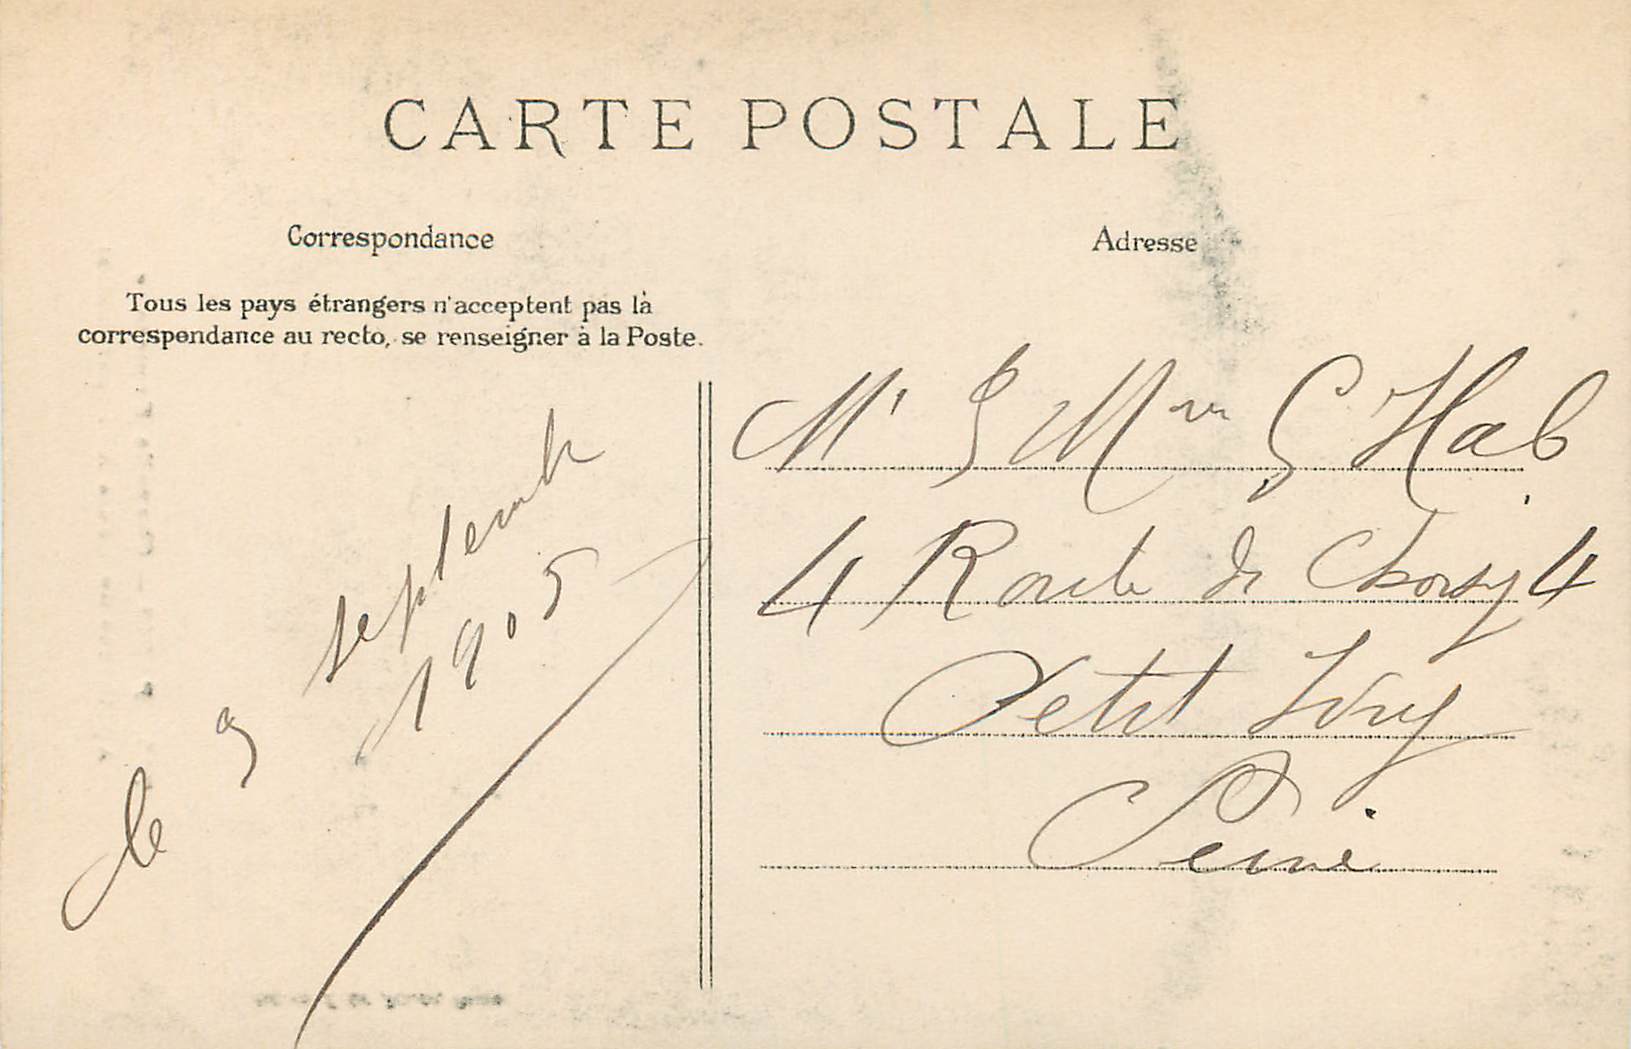 CARTE POSTALE
Correspondance
Adresse
Tous les pays étrangers n'acceptent pas là
correspondance au recto, se renseigner à la Poste.
le 9 septembre
1905
Mr & Mme G Hab
4 Route de Choisy 4
Petit Ivry
Seine